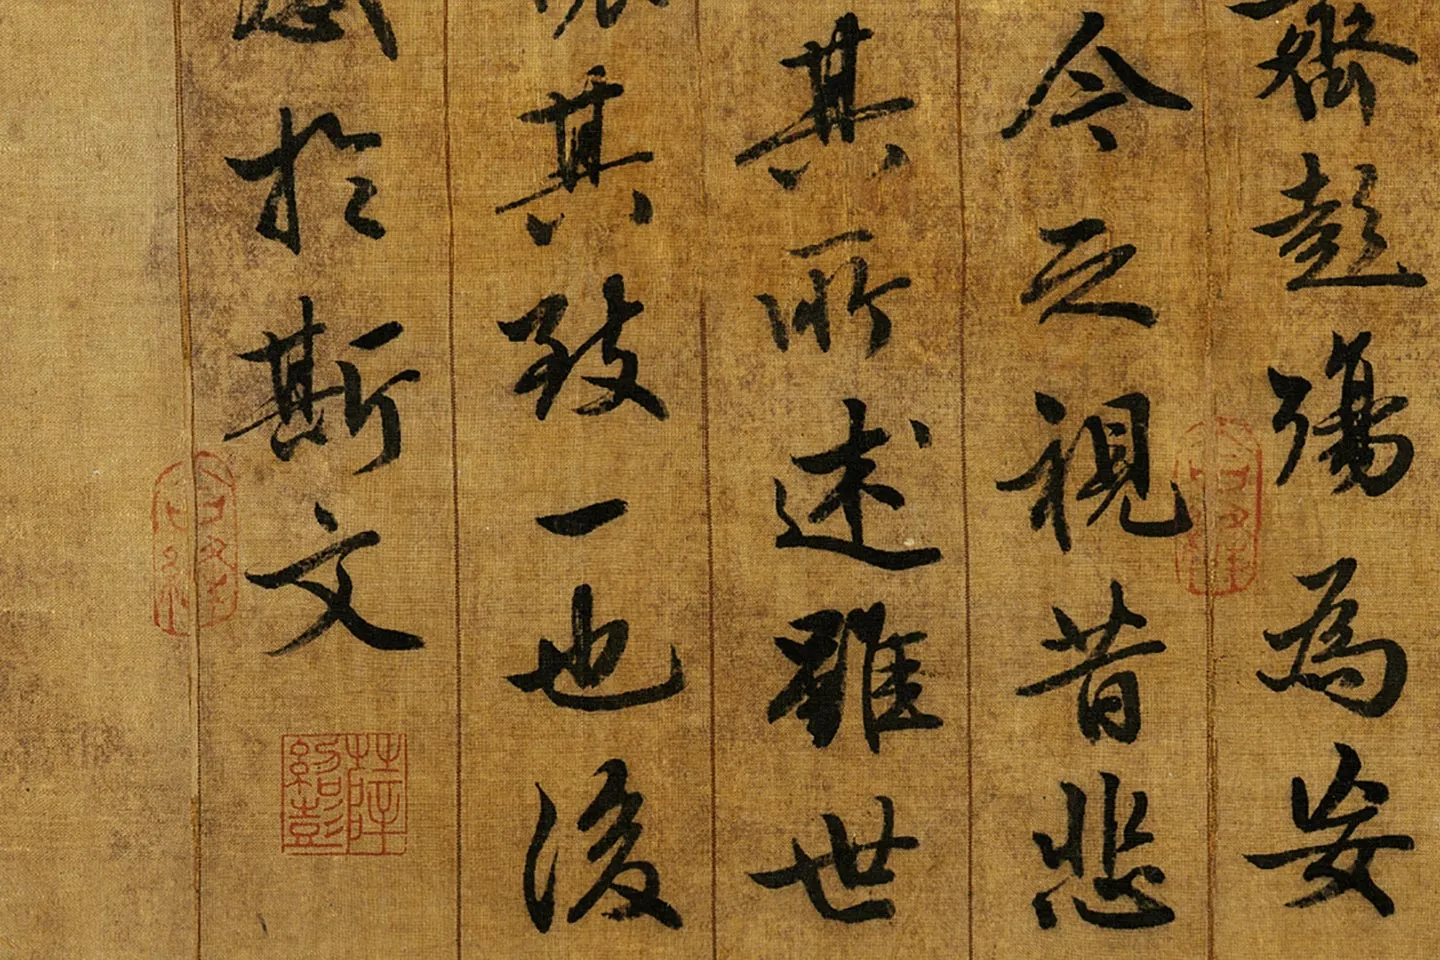 齊彭殤為妄
今之視昔悲
其所述雖世
其致一也後
感於斯文
薛紹彭